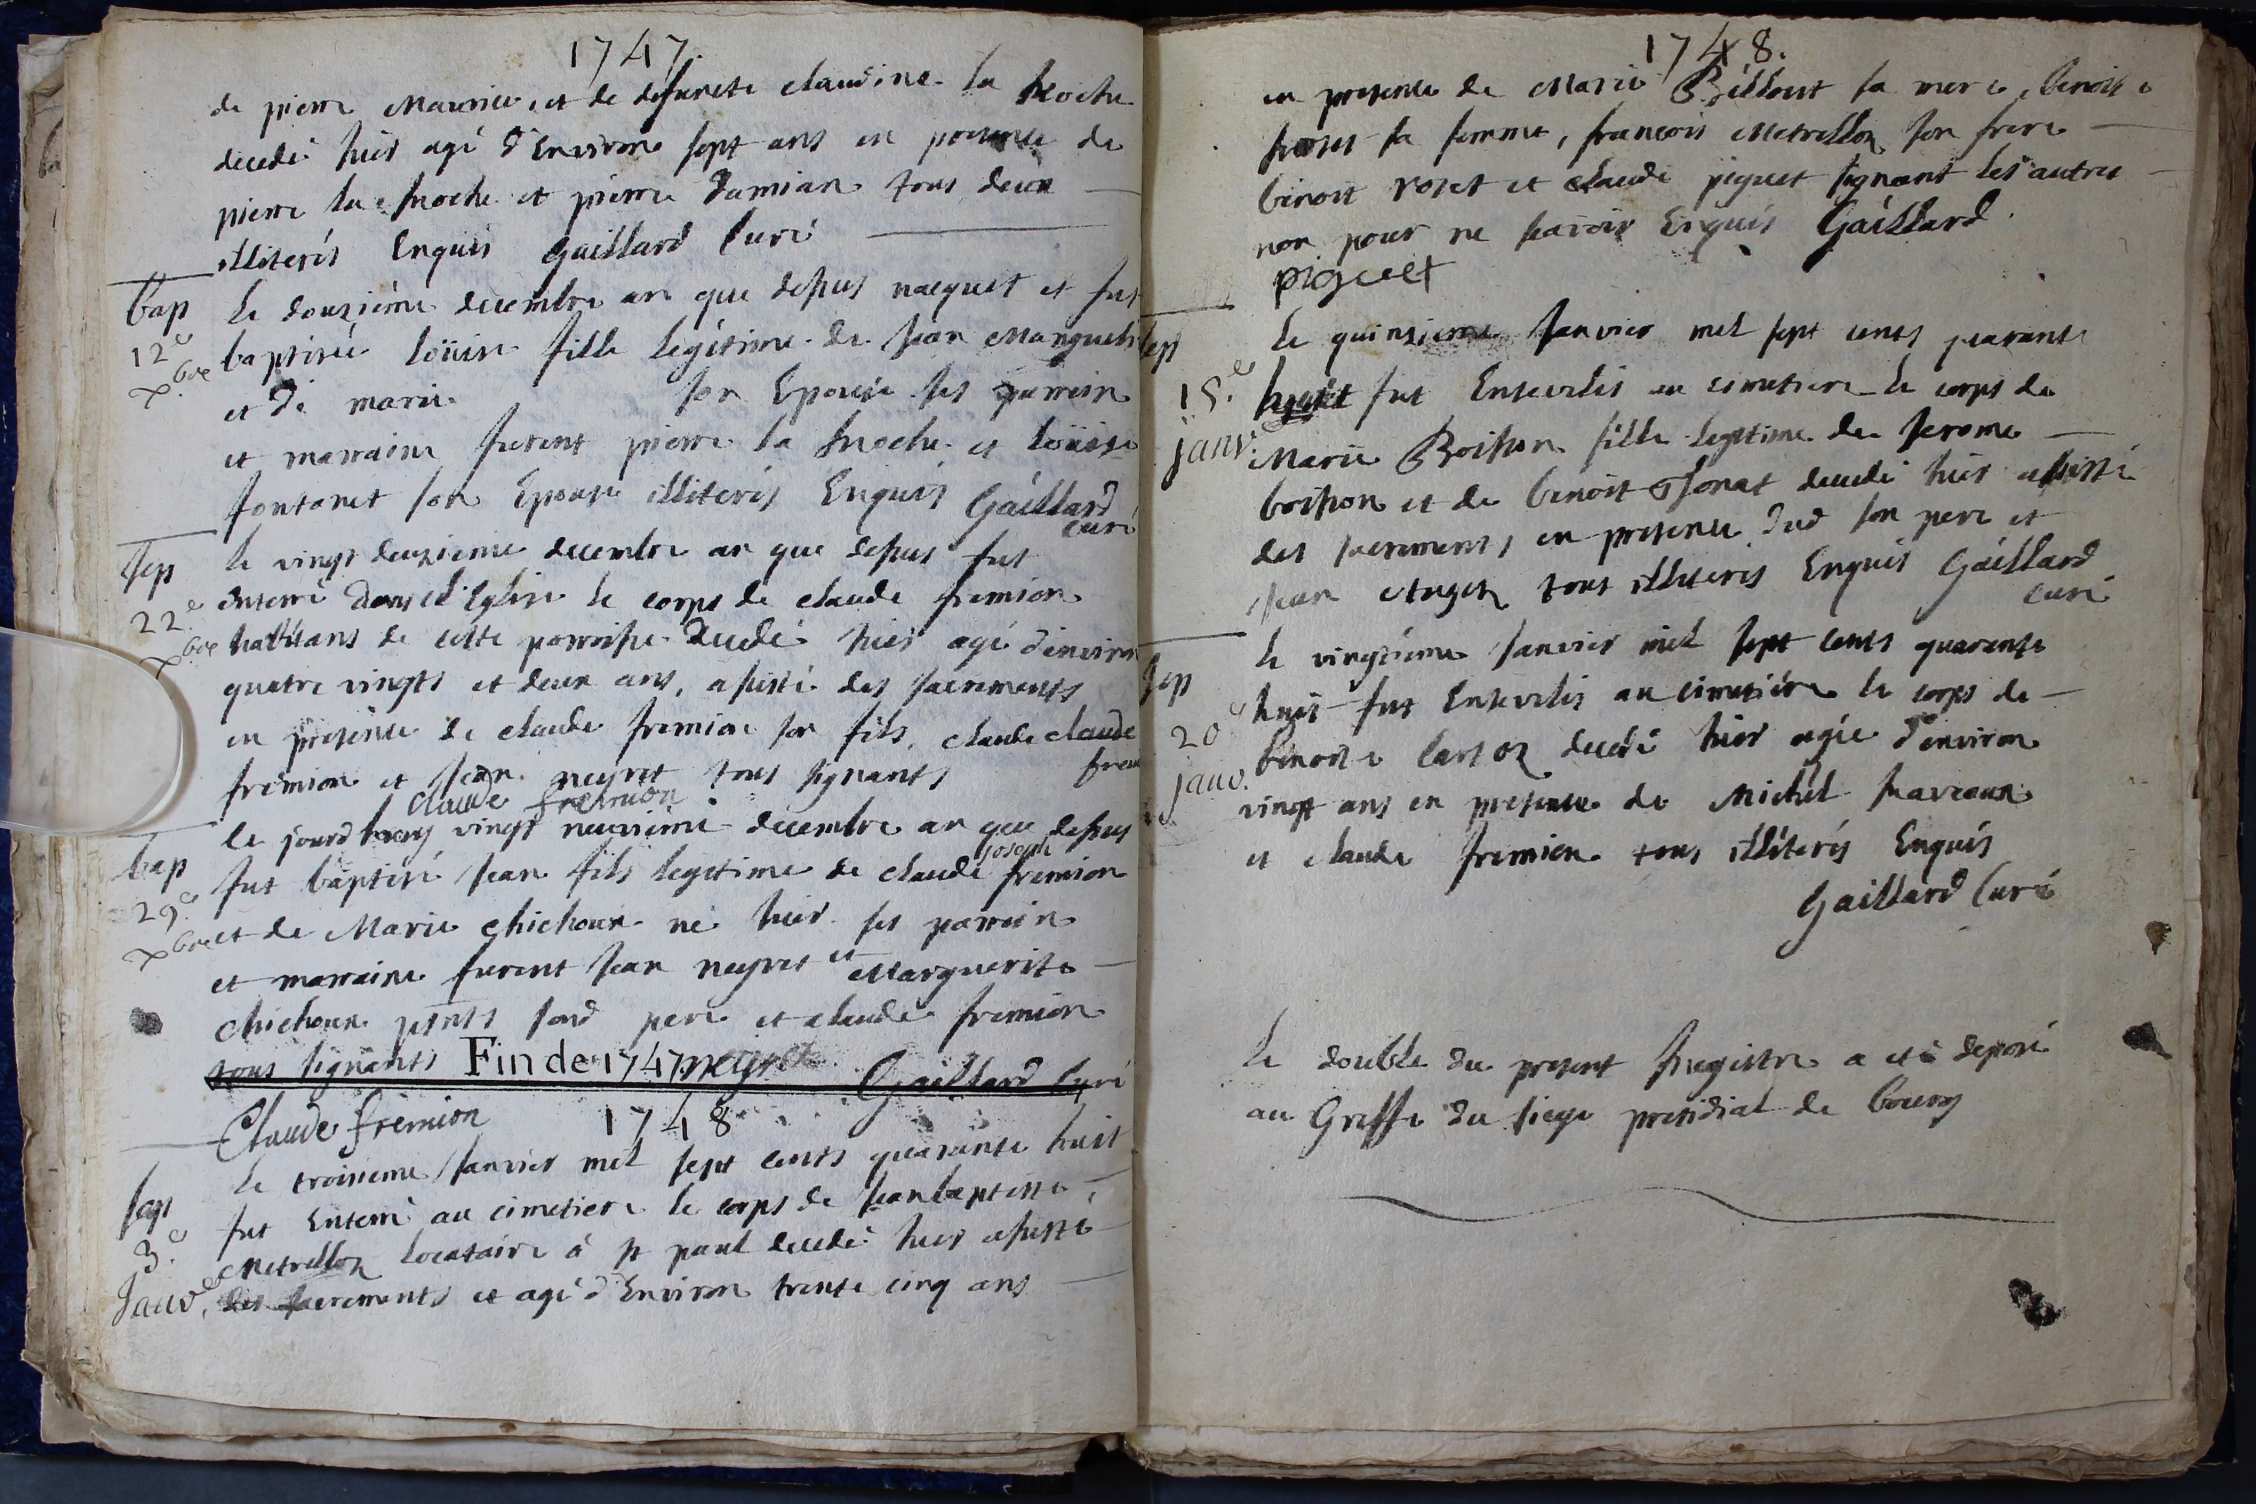 1747.
de pierre Maurice, et de defuncte claudine la Roche
decedé hier agé d'Environ sept ans en presence de
pierre la Roche et pierre Damian tous deux
illiterés Enquis Gaillard Curé
bap
12e
xbre
Le douzième decembre an que dessus nacquit et fut
baptisée loüise fille legitime de Jean Manguel
et de marie son Epouse ses parrein
et marraine furent pierre la Roche et loüise
fontanet son Epouse illiterés Enquis Gaillard
curé
sep
22e
xbre
le vingt deuxieme decembre an que dessus fut
enterré dans l'Eglise le corps de claude fremion
habitans de cette parroisse decedé hier agé d'environ
quatre vingts et deux ans, assisté des sacrements
en presence de claude fremion son fils, claude claude
fremion et Jean neyret tous signants
claude fremion
bap
29e
xbre
le jourdhuy vingt neuvieme decembre an que dessus
fut baptisé Jean fils legitime de claude joseph fremion
et de Marie chichoux né hier ses parrein
et marraine furent Jean neyret et Marguerite
chichoux pnts sond pere et claude fremion
tous signants Fin de 1747. neyret
Gaillard Curé
Claude fremion
1748
sep
3e
Janve.
Le troisieme Janvier mil sept cents quarante huit
fut Enterré au cimetiere le corps de Jeanbaptiste
Metrillon locataire à st paul decedé hier assisté
des sacrements et agé d'Environ trente cinq ans
1748.
en presence de Marie sa mere, benoite
sa femme, francois Metrillon son frere
benoit roset et claude piquet signant les autres
non pour ne scavoir Enquis Gaillard.
piqeet
sep
15.e
janv.
Le quinzieme Janvier mil sept cents quarante
huit fut Ensevelis au cimetiere le corps de
Marie Boisson fille legitime de Jerome
boisson et de benoit decedé hier assisté
des sacrements en presence dud son pere et
Jean tous illiterés Enquis Gaillard
curé
sep
20e
janv.
le vingtième Janvier mil sept cents quarante
huit fut Ensevelis au cimetière le corps de
benoite decedé hier agée d'environ
vingt ans en presence de Michel
et claude fremion tous illiterés Enquis
Gaillard Curé
Le double du present Registre a eté deposé
au Greffe du siege presidial de bourg